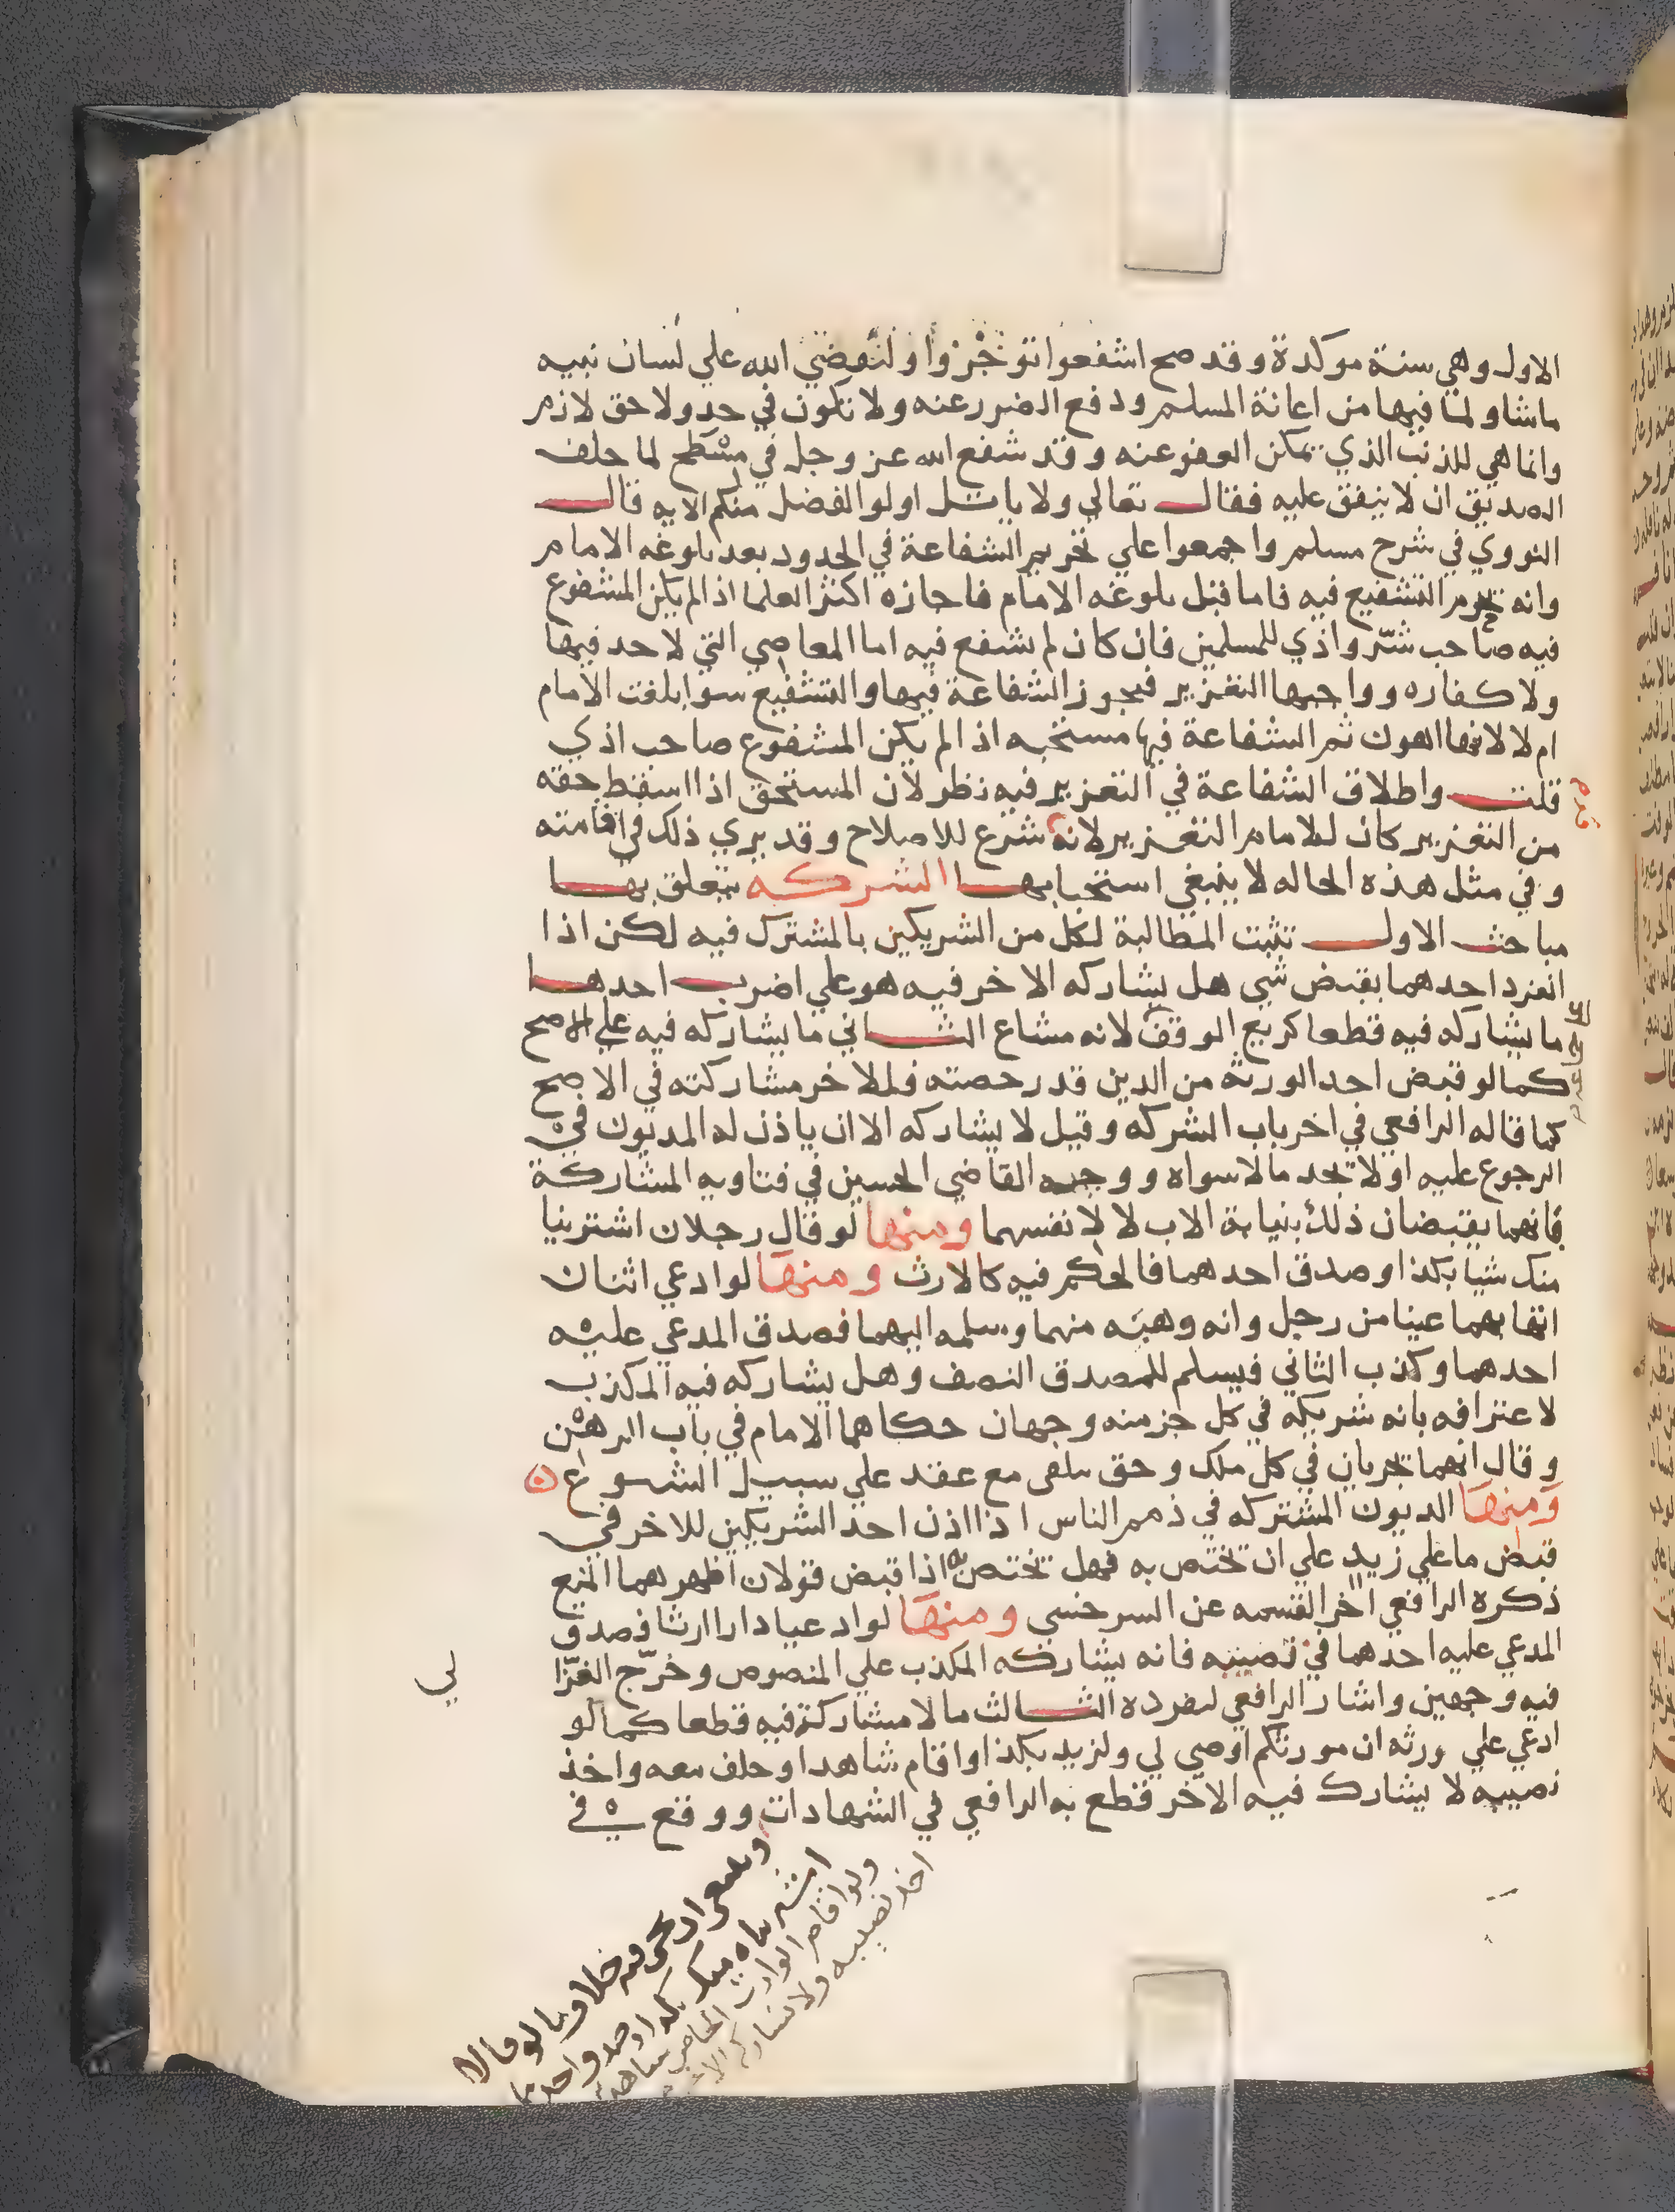 الاول وهي سنة موكدة وقد صح اشفعوا توجروا ولتقضي الله علي لسان نبيه
ماشا ولما فيها من اعانة المسلم ودفع الضرر عنه ولا تكون في حد ولا حق لازم
وانما هي للذنب الذي يمكن العفو عنه وقد شفع الله عز وجل في مسطح لما حلف
الصديق ان لا ينفق عليه فقال تعالي ولا ياتل اولوا الفضل منكم الايه قال
النووي في شرح مسلم واجمعوا علي تحريم الشفاعة في الحدود بعد بلوغه الامام
وانه يحرم التشفيع فيه فاما قبل بلوغه الامام فاجازه اكثر العلما اذا لم يكن المشفوع
فيه صاحب شرّ واذي للمسلمين فان كان لم يشفع فيه اما المعاصي التي لا حد فيها
ولا كفاره وواجبها التعزير فيجوز الشفاعة فيها والتشفيع سوا بلغت الامام
ام لا لانها اهون ثم الشفاعة فيها مستحبه اذا لم يكن المشفوع صاحب اذي
قلت واطلاق الشفاعة في التعزير فيه نظر لان المستحق اذا اسقط حقه
من التعزير كان للامام التعزير لانه شرع للاصلاح وقد يري ذلك في اقامته
وفي مثل هذه الحاله لا ينبغي استحبابها الشركه يتعلق بها
مباحث الاول تثبت المطالبة لكل من الشريكين بالمشترك فيه لكن اذا
انفرد احدهما بقبض شي هل يشاركه الاخر فيه هو علي اضرب احدها
ما يشاركه فيه قطعا كريع الوقف لانه مشاع الثاني ما يشاركه فيه علي الاصح
كما لو قبض احد الورثة من الدين قدر حصته فللاخر مشاركته في الاصح
كما قاله الرافعي في اخر باب الشركه وقيل لا يشاركه الا ان ياذن له المديون في
الرجوع عليه او لا تجد مالا سواه ووجه القاضي الحسين في فتاويه المشاركة
فانهما يقبضان ذلك بنيابة الاب لا لانفسهما ومنها لو قال رجلان اشترينا
منك شيا بكذا وصدق احدهما فالحكم فيه كالارث ومنها لو ادعي اثنان
انهما اتهبا عينا من رجل وانه وهبه منهما وسلمه اليهما فصدق المدعي عليه
احدهما وكذب الثاني فيسلم للمصدق النصف وهل يشاركه فيه المكذب
لاعترافه بانه شريكه في كل جز منه وجهان حكاهما الامام في باب الرهن
وقال انهما تجريان في كل ملك وحق تلقي مع عقد علي سبيل الشيوع
ومنها الديون المشتركه في ذمم الناس اذا اذن احد الشريكين للاخر في
قبض ما علي زيد علي ان تختص به فهل تختص به اذا قبض قولان اظهرهما المنع
ذكره الرافعي اخر القسمه عن السرخسي ومنها لو ادعيا دارا ارثا فصدق
المدعي عليه احدهما في نصيبه فانه يشاركه المكذب علي المنصوص وخرّج الغزا
لي
فيه وجهين واشار الرافعي لتفرده الثالث ما لا مشاركة فيه قطعا كما لو
ادعي علي ورثه ان مورثكم اوصي لي ولزيد بكذا واقام شاهدا وحلف معه واخذ
نصيبه لا يشارك فيه الاخر قطع به الرافعي في الشهادات ووقع في
وينبغي ان يجي فيه خلاف ما لو قالا
اشتريناه منك بكذا وصدق احدهما
ولو اقام الوارث الحاضر شاهدين
اخذ نصيبه ولا يشاركه الاخر